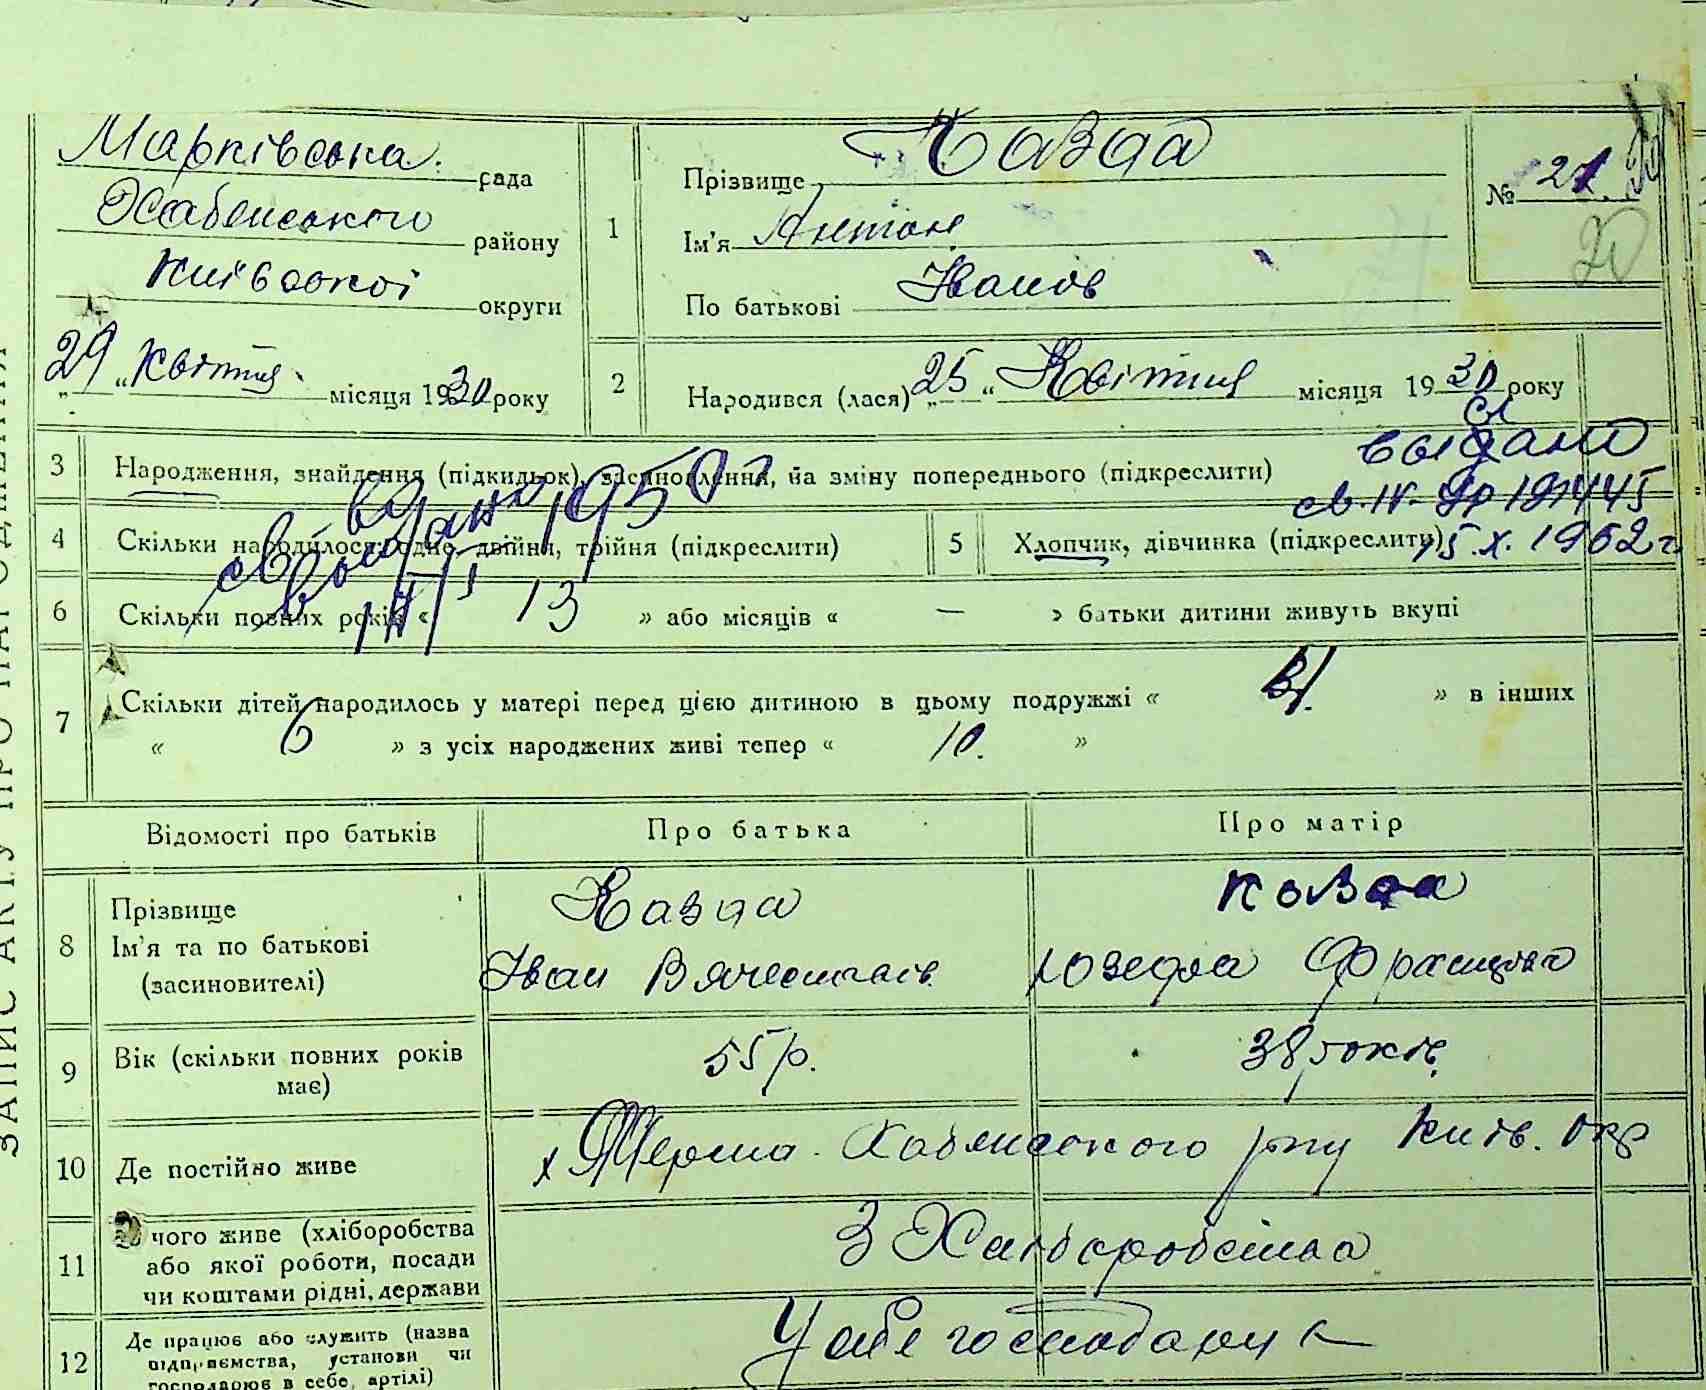 ЗАПИС АКТУ ПРО НАРОДЖЕННЯ
Марківська рада
Хабенського району
Київської округи
29 " Квітня місяця 1930 року
1
Прізвище Кавза
Ім'я Антон
По батькові Іванов
№ 21
20
2
Народився (лася) „25 " Квітня місяця 1930 року
3 Народження, знайдення (підкидьок), засиновлення, на зміну попереднього (підкреслити)
выдано
4 Скільки народилося: одне, двійня, трійня (підкреслити)
5 Хлопчик, дівчинка (підкреслити)
15.X.1962 г
выдано 1950 г
6 Скільки повних років « 13 » або місяців « — » батьки дитини живуть вкупі
7 Скільки дітей народилось у матері перед цією дитиною в цьому подружжі « » в інших
« 6 » з усіх народжених живі тепер « 10. »
Відомості про батьків
Про батька
Про матір
8 Прізвище
Ім'я та по батькові
(засиновителі)
Кавза
Іван Вячеслав.
Кавза
9 Вік (скільки повних років має)
55 р.
38 років.
10 Де постійно живе
Хабенського р-ну Київ. Окр
11 З чого живе (хліборобства
або якої роботи, посади
чи коштами рідні, держави
З Хліборобства
12 Де працює або служить (назва
підприємства, установи чи
господарює в себе, артілі)
У себе господарує